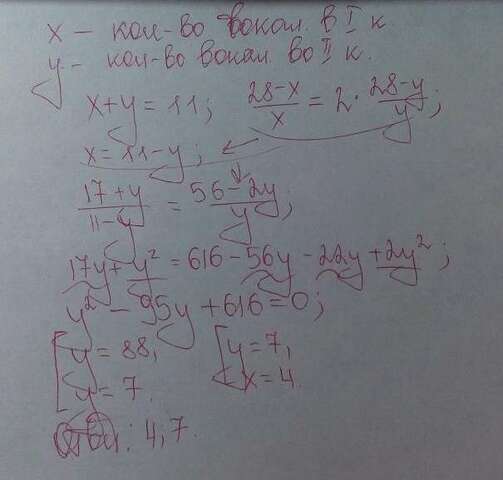 x – кол-во вокал. в I к.
y – кол-во вокал. во II к.
x+y=11; (28-x)/x = 2·(28-y)/y;
x=11-y;
(17+y)/(11-y) = (56-2y)/y;
17y+y²=616-56y-22y+2y²;
y²-95y+616=0;
[y=88, [y=7,
y=7. x=4.
Отв.: 4,7.